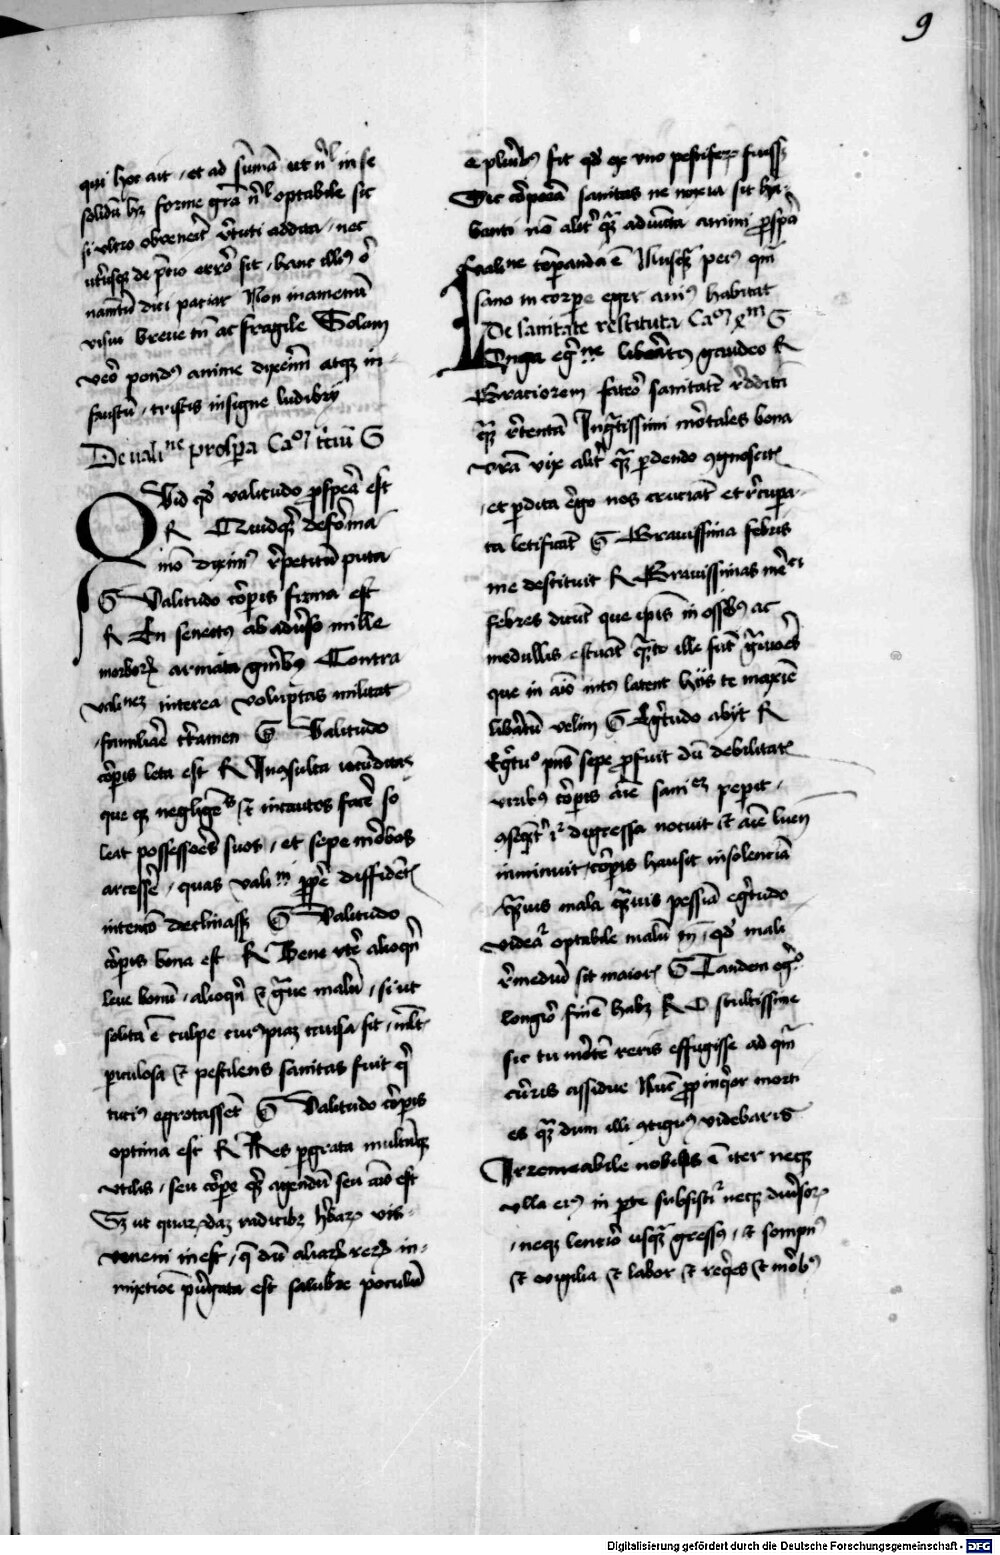 9
qui hoc ait, et ad sūmā ut nl̄ in se
solidū hꝫ forme grā nl̄ optabile sit
si ultro obvenerit v̄tuti addita, nec
utriusqꝫ de p̄tio error̄ sit, hanc illiꝰ or̄
namtū dici patiar Non inamenū
visui breve tn̄ ac fragile Solam
vero pondꝰ anime dixerim atqꝫ in-
faustū, tristis insigne ludibrij
De vali^ne prospa Ca^m t̄ciū G
Quid qd̄ valitudo prospera est
R Quidqꝫ de forma
imo diximꝰ r̄petitū puta
G Valitudo cor̄pis firma est
R En senectꝰ ab adv̄so mille
morborꝫ armata gn̄ibꝰ Contra
vali^nez interea voluptas militat
familiare c̄tamen G Valitudo
cor̄pis leta est R Inconsulta iocūditas
que qꝫ negligēs et incautos facē so
leat possessores suos, et sepe morbos
arcessē, quas vali^ni prop̄e diffidētes
intento declinassꝫ G Valitudo
cor̄pis bona est R Bene utē alioqn̄
leve bonū, alioqn̄ et grave malū, si ut
solita ē culpe cuiꝰpiaz causa fit, mlt̄
piculosa et pestilens sanitas fuit qͥ
tutiꝰ egrotassēt G Valitudo cor̄pis
optima est R Res pgrata multūqꝫ
utilis, seu corpe qͥd agendū seu aīo est
Sꝫ ut quarūdaz radicibꝫ herbarū vis
veneni inest, q̄ dū aliarꝫ rerꝫ in-
mixtiōe purgata est salubre poculū
e pluribꝰ fit qd̄ ex uno pestiferū fuissꝫ
Sic cor̄porea sanitas ne noxia sit ha-
benti nō alitͥ qꝫ adiuncta animi prospa
vali^ne tēperanda ē Nusqꝫ peiꝰ qͣm
sano in corpe eger aniꝰ habitat
De sanitate restituta Ca^m G
Longa egr̄^ne liberatꝰ gaudeo R
Graciorem fateor̄ sanitatē r̄dditā
qꝫ r̄tentā Ingratissimi mortales bona
vr̄a vix alitͥ qꝫ perdendo cognoscitꝭ
et perdita ergo nos cruciāt et r̄cupa-
ta letificāt G Gravissima febris
me destituit R Gravissimas me^ci
febres dicūt que ipīs in ossibꝰ ac
medullis estuāt qꝫto ille sūt graviores
que in aīo intꝰ latent hijs te maxīe
liberatū velim G Egr̄tudo abijt R
Egr̄tuᵒ pn̄s sepe profuit dū debilitatꝭ
viribꝰ cor̄pis aīe sani^ez peperit,
digressa nocuit et aīe luem
inminuit, cor̄pis hausit insolenciā
Quis mala qꝫvis pessīa egr̄tudo
videaͬ optabile malū tn̄, qd̄ mali
r̄mediū sit maiorꝭ G Tandem egr̄^o
longior̄ finē habꝫ R O stultissime
sic tu mortē reris effugisse ad qͣm
cur̄ris assidue Nūc propinquior morti
es qꝫ dum illi contigiꝰ videbaris
Irremeabile nobilis ē iter necꝫ
ulla eiꝰ in pte subsistiͬ necꝫ diversorꝫ
neqꝫ lentior̄ usqꝫ gressꝰ, et sompnꝰ
et vigilia et labor et req̄es et morbꝰ
Digitalisierung gefördert durch die Deutsche Forschungsgemeinschaft - DFG